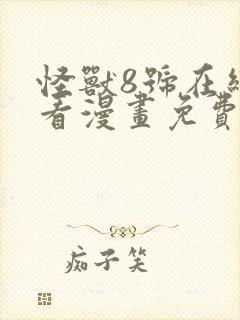 怪獸8號在線
看漫畫免費
痴子笑